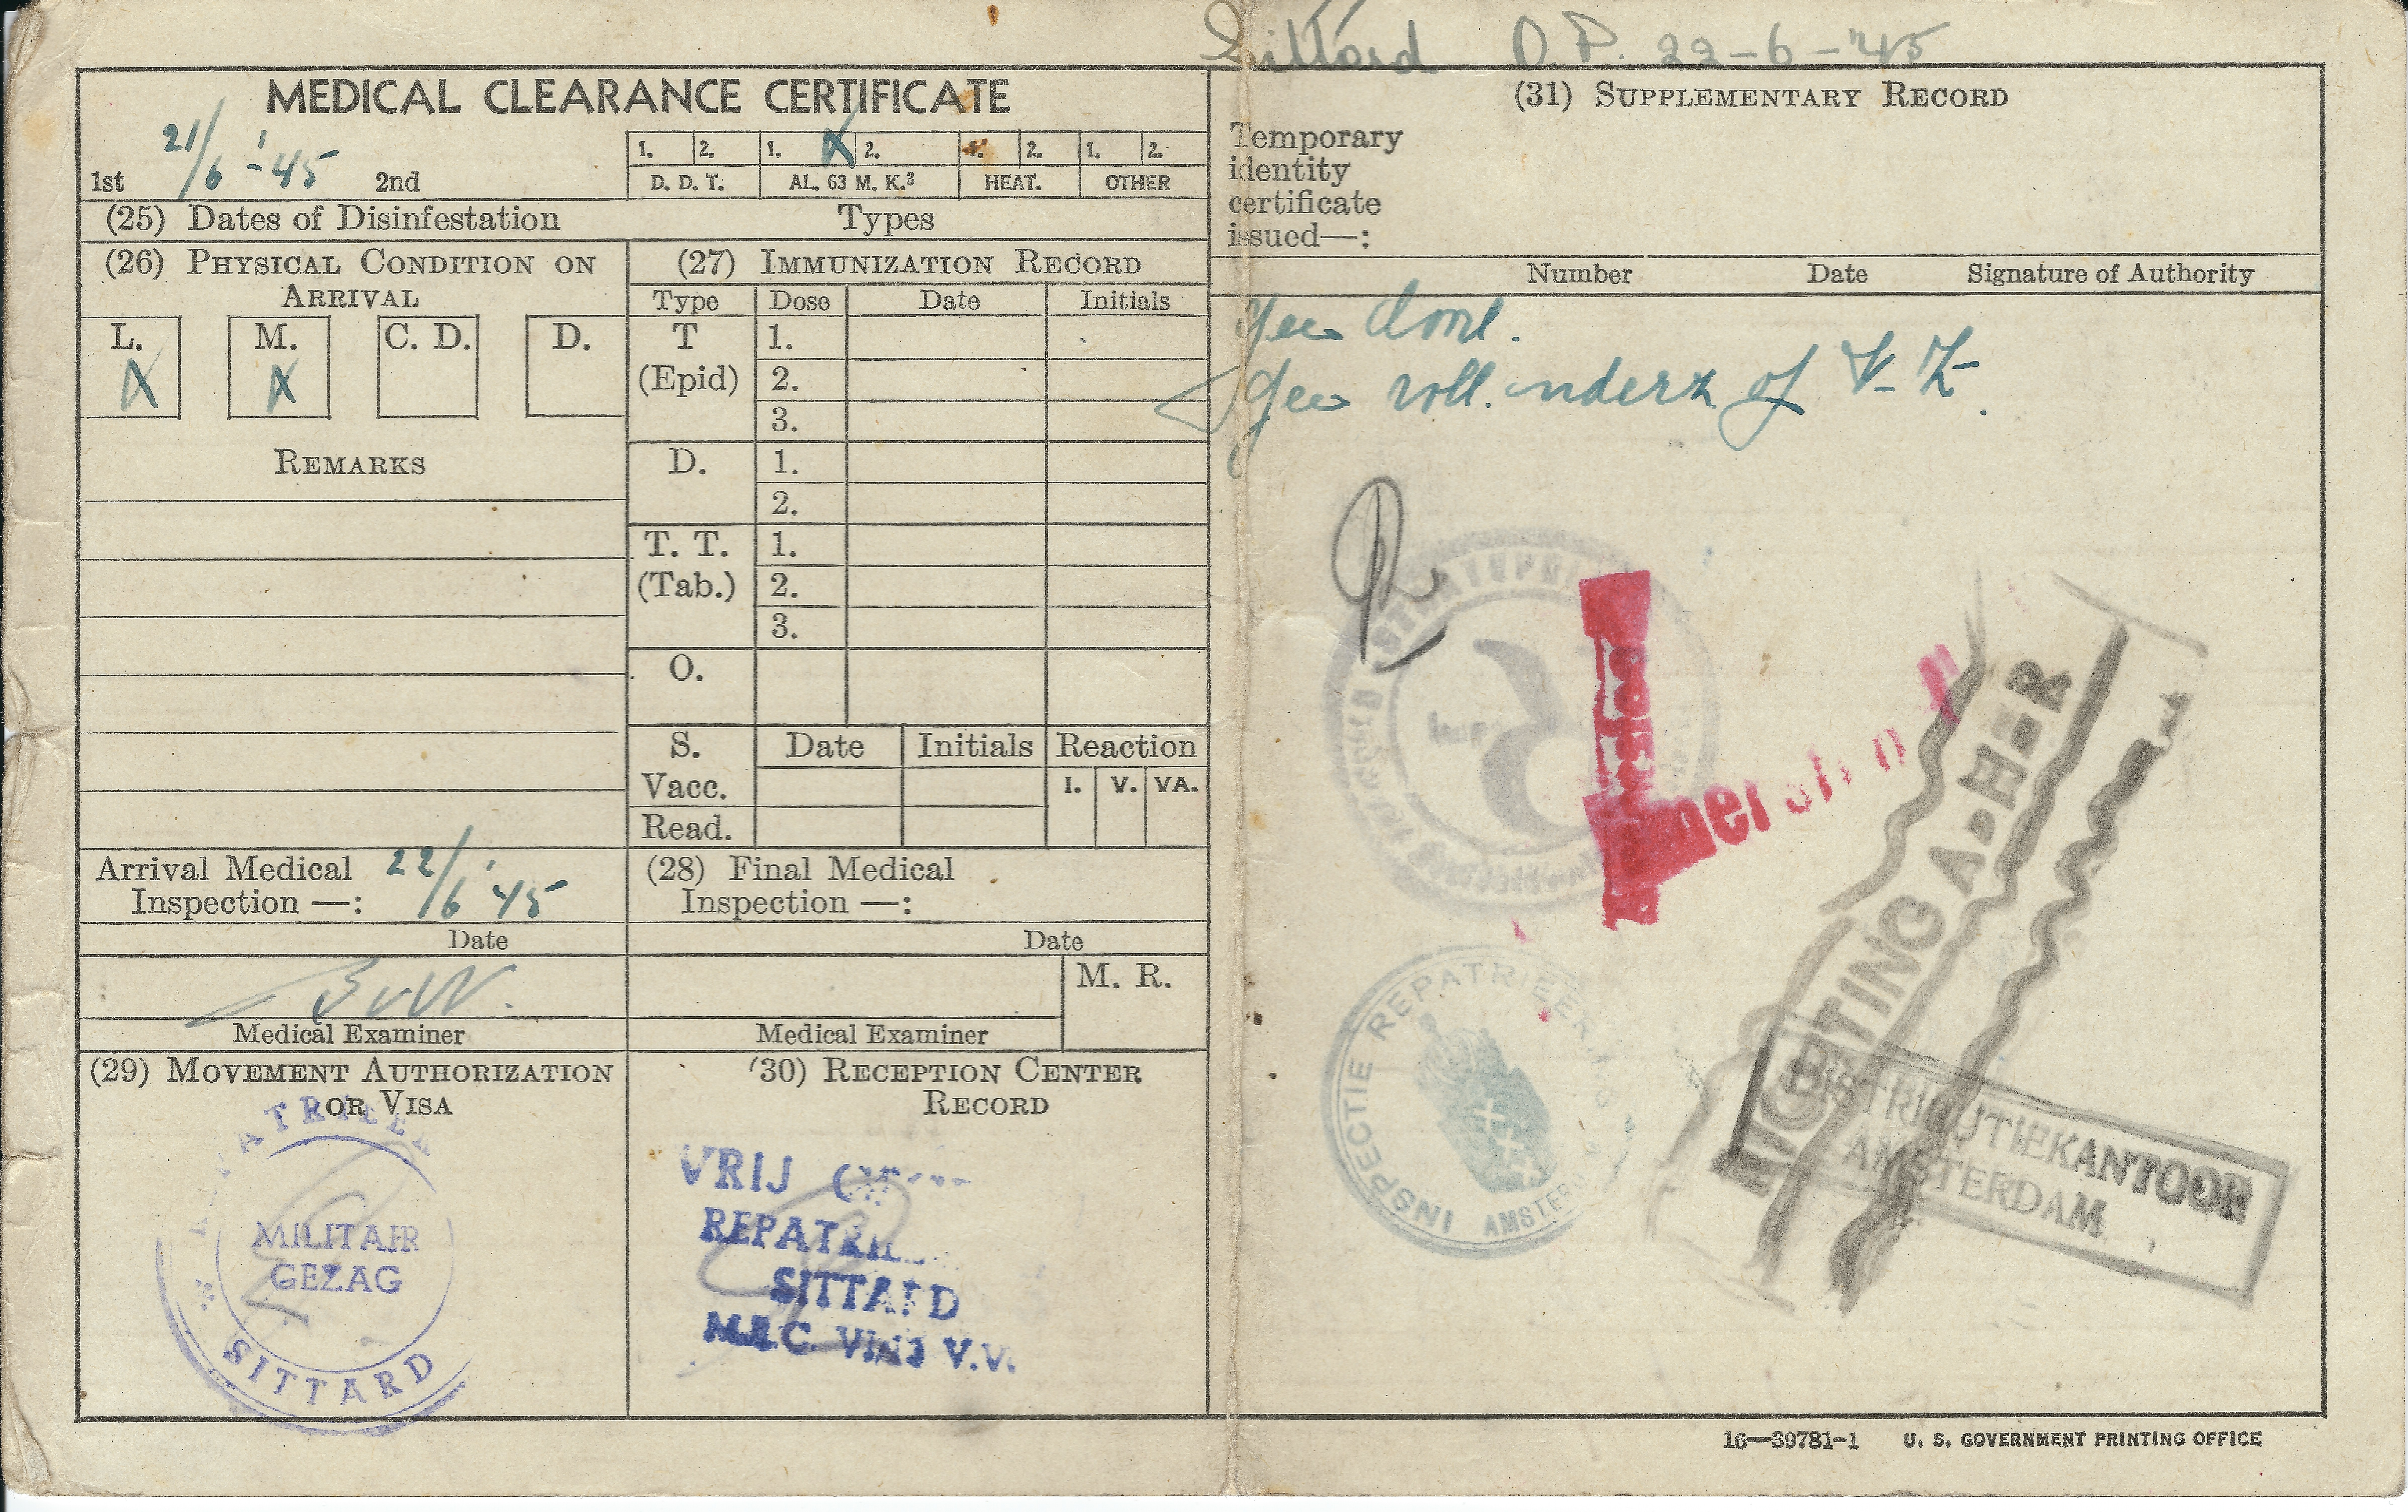 Sittard O.P. 22-6-'45
MEDICAL CLEARANCE CERTIFICATE
21/6-'45
1st 2nd
1. 2. 1. X 2. 1. 2. 1. 2.
D. D. T. AL. 63 M. K.³ HEAT. OTHER
(25) Dates of Disinfestation Types
(26) PHYSICAL CONDITION ON
ARRIVAL
L. M. C. D. D.
X X
REMARKS
(27) IMMUNIZATION RECORD
Type Dose Date Initials
T 1.
(Epid) 2.
3.
D. 1.
2.
T. T. 1.
(Tab.) 2.
3.
O.
S. Date Initials Reaction
Vacc. I. V. VA.
Read.
Arrival Medical 22/6 '45
Inspection —:
Date
Medical Examiner
(28) Final Medical
Inspection —:
Date
M. R.
Medical Examiner
(29) MOVEMENT AUTHORIZATION
OR VISA
MILITAIR
GEZAG
SITTARD
(30) RECEPTION CENTER
RECORD
VRIJ
SITTARD
V.V.
(31) SUPPLEMENTARY RECORD
Temporary
identity
certificate
issued—:
Number Date Signature of Authority
INSPECTIE REPATRIEERING
AMSTERDAM
DISTRIBUTIEKANTOOR
AMSTERDAM
16—39781-1 U. S. GOVERNMENT PRINTING OFFICE